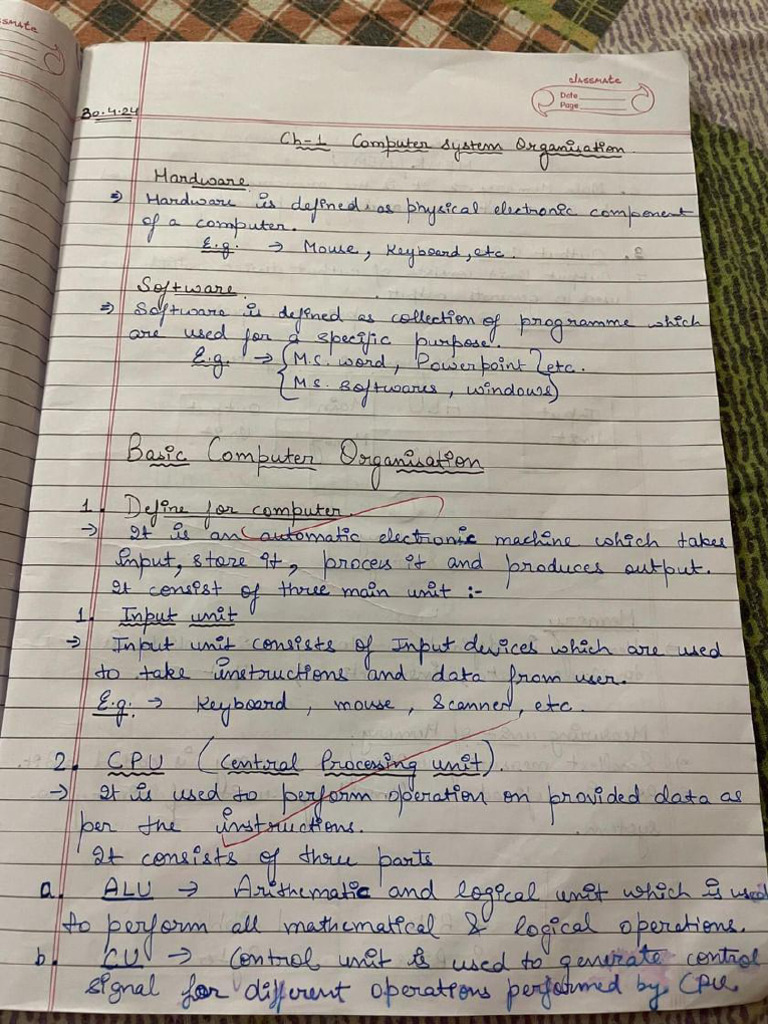 ssmate
classmate
Date
Page
30.4.24
Ch-1 Computer System Organisation.
Hardware
⇒ Hardware is defined as physical electronic component
of a computer.
E.g. → Mouse, Keyboard, etc.
Software.
⇒ Software is defined as collection of programme which
are used for a specific purpose.
E.g. → {M.S. word, Powerpoint} etc.
{M.S. Softwares, windows}
Basic Computer Organisation
1. Define for computer.
→ It is an automatic electronic machine which takes
input, store it, process it and produces output.
It consist of three main unit :-
1. Input unit
→ Input unit consists of Input devices which are used
to take instructions and data from user.
E.g. → Keyboard, mouse, Scanner, etc.
2. CPU (Central Processing unit).
→ It is used to perform operation on provided data as
per the instructions.
It consists of three parts
a. ALU → Arithematic and logical unit which is used
to perform all mathematical & logical operations.
b. CU → Control unit is used to generate control
signal for different operations performed by CPU.